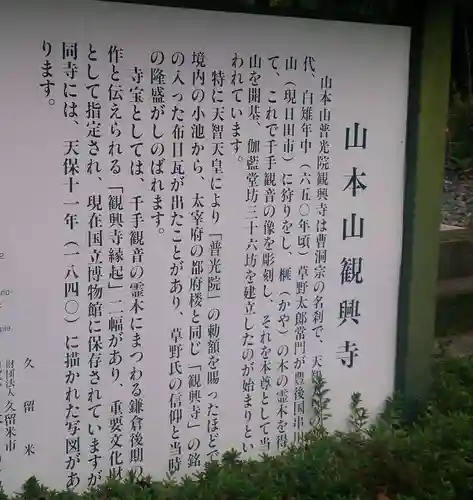 山本山観興寺
山本山普光院観興寺は曹洞宗の名刹で、天智
代、白雉年中（六五〇年頃）草野太郎常門が豊後国串川
山（現日田市）に狩りをし、榧（かや）の木の霊木を得
て、これで千手観音の像を彫刻し、それを本尊として当
山を開基、伽藍堂坊三十六坊を建立したのが始まりとい
われています。
特に天智天皇により「普光院」の勅額を賜ったほどで
境内の小池から、太宰府の都府楼と同じ「観興寺」の銘
の入った布目瓦が出たことがあり、草野氏の信仰と当時
の隆盛がしのばれます。
寺宝としては、千手観音の霊木にまつわる鎌倉後期の
作と伝えられる「観興寺縁起」二幅があり、重要文化財
として指定され、現在国立博物館に保存されていますが
同寺には、天保十一年（一八四〇）に描かれた写図があ
ります。
久留米
財団法人 久留米市